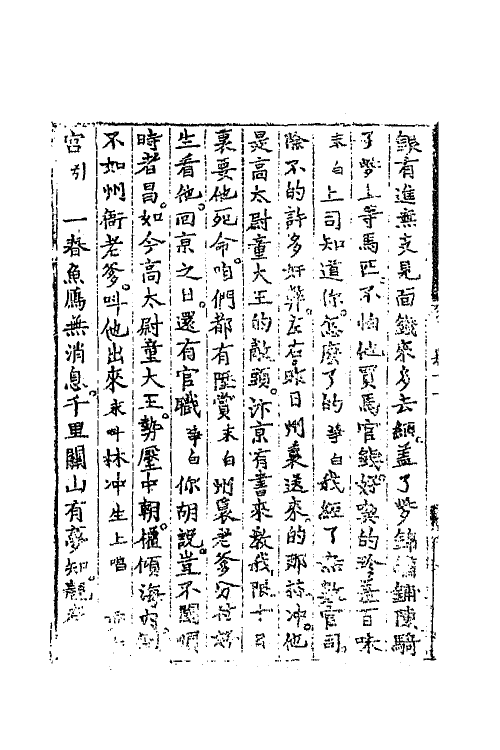 錢有進無支見面錢來多去細盖了紫錦鋪陳騎
了紫上等馬匹不怕他買馬官錢好喫的珍羞百味
末白上司知道你怎麼了的 爭白我經了無數官司
除不的許多好弊左右昨日州裏送來的那林冲他
是高太尉童大王的敵頭汴京有書來教我限十日
裏要他死命咱們都有陞賞 末白州裏老爹分付好
生看他回京之日還有官職 爭白你胡說豈不聞
時者昌如今高太尉童大王勢壓中朝權傾海內
不如州衙老爹叫他出來 末叫林冲 生上唱
宮引 一春魚鴈無消息千里關山有夢知